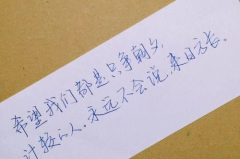 希望我们都是只争朝夕
计较的人.永远不会说.来日方长.